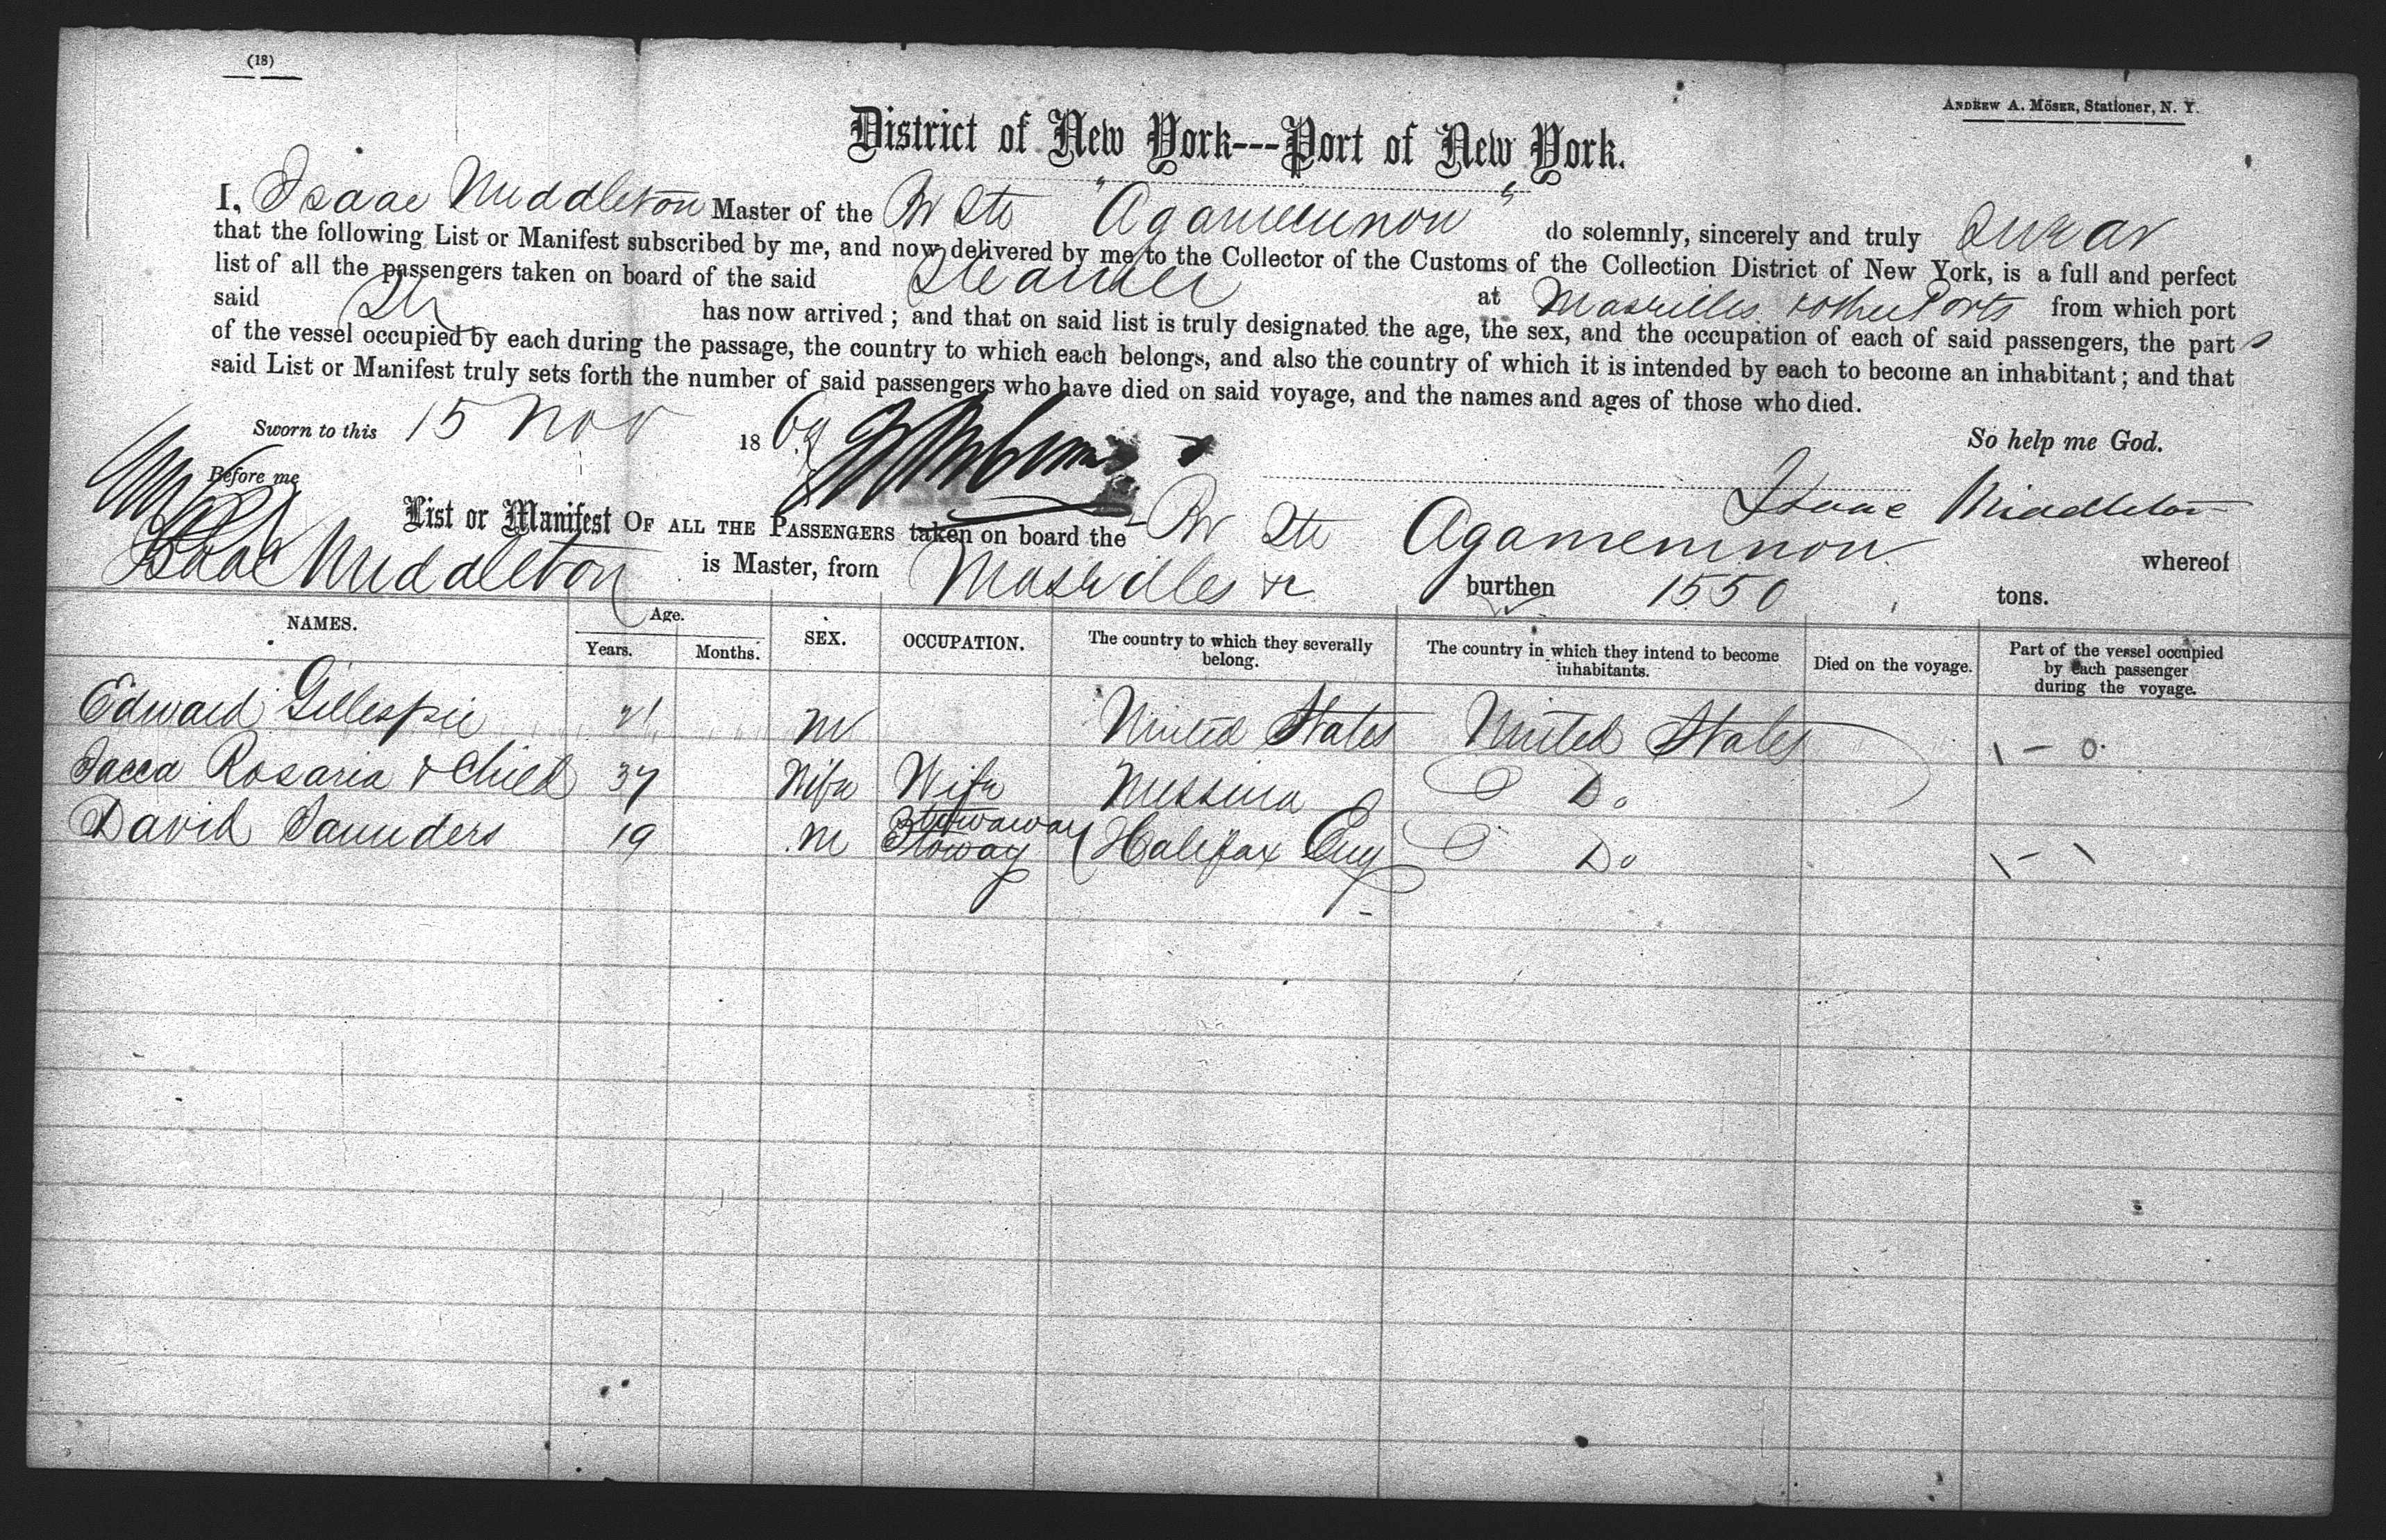 (18)
ANDREW A. MÖSER, Stationer, N. Y.
District of New York---Port of New York.
I, Isaac Middleton Master of the Br Str "Agamemnon" do solemnly, sincerely and truly Swear
that the following List or Manifest subscribed by me, and now delivered by me to the Collector of the Customs of the Collection District of New York, is a full and perfect
list of all the passengers taken on board of the said Steamer at Marseilles & other Ports from which port
said Str has now arrived; and that on said list is truly designated the age, the sex, and the occupation of each of said passengers, the part
of the vessel occupied by each during the passage, the country to which each belongs, and also the country of which it is intended by each to become an inhabitant; and that
said List or Manifest truly sets forth the number of said passengers who have died on said voyage, and the names and ages of those who died.
Sworn to this 15 Nov 1869 So help me God.
Before me Isaac Middleton
List or Manifest OF ALL THE PASSENGERS taken on board the Br Str Agamemnon whereof
Isaac Middleton is Master, from Marseilles &c burthen 1550 tons.
NAMES. Age. Years. Months. SEX. OCCUPATION. The country to which they severally belong. The country in which they intend to become inhabitants. Died on the voyage. Part of the vessel occupied by each passenger during the voyage.
Edward Gillespie 21 M United States United States 1 - 0
Sacca Rosaria & Child 37 Wife Wife Messina Do
David Saunders 19 M Stowaway Stoway Halifax Eng Do 1 - 1